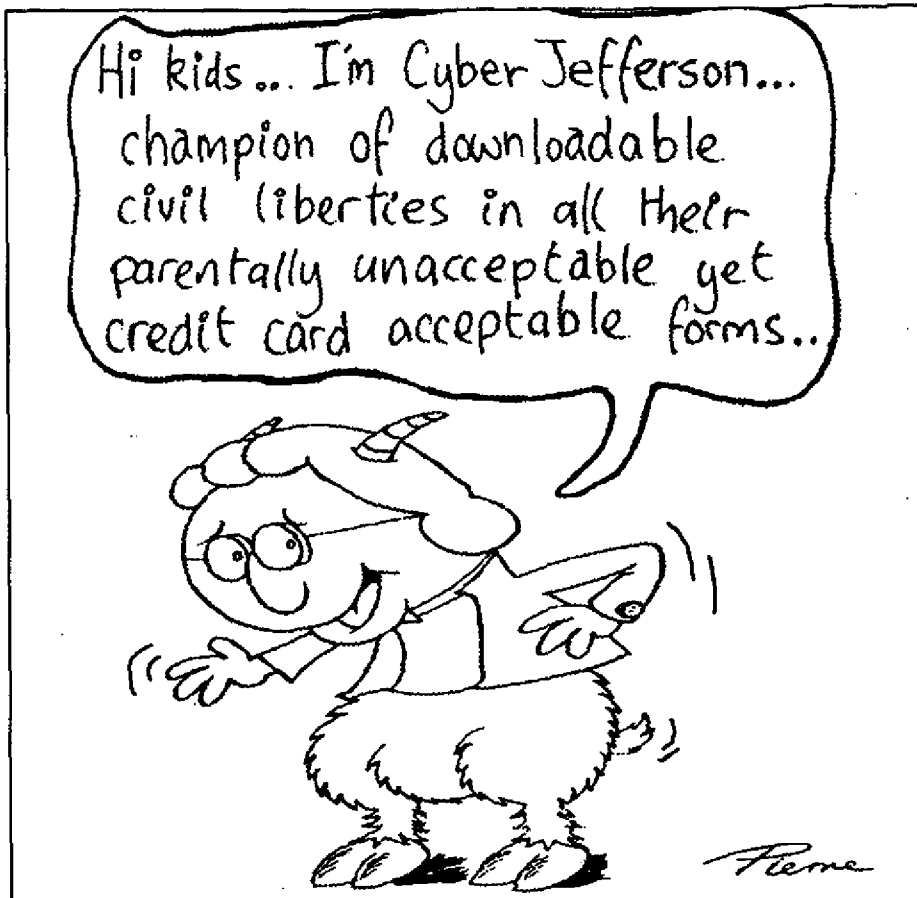 Hi kids... I'm Cyber Jefferson...
champion of downloadable
civil liberties in all their
parentally unacceptable yet
credit card acceptable forms..